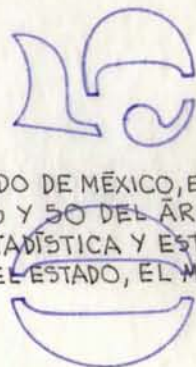 DO DE MÉXICO, E
Y 50 DEL ÁR
TADÍSTICA Y EST
EL ESTADO, EL M